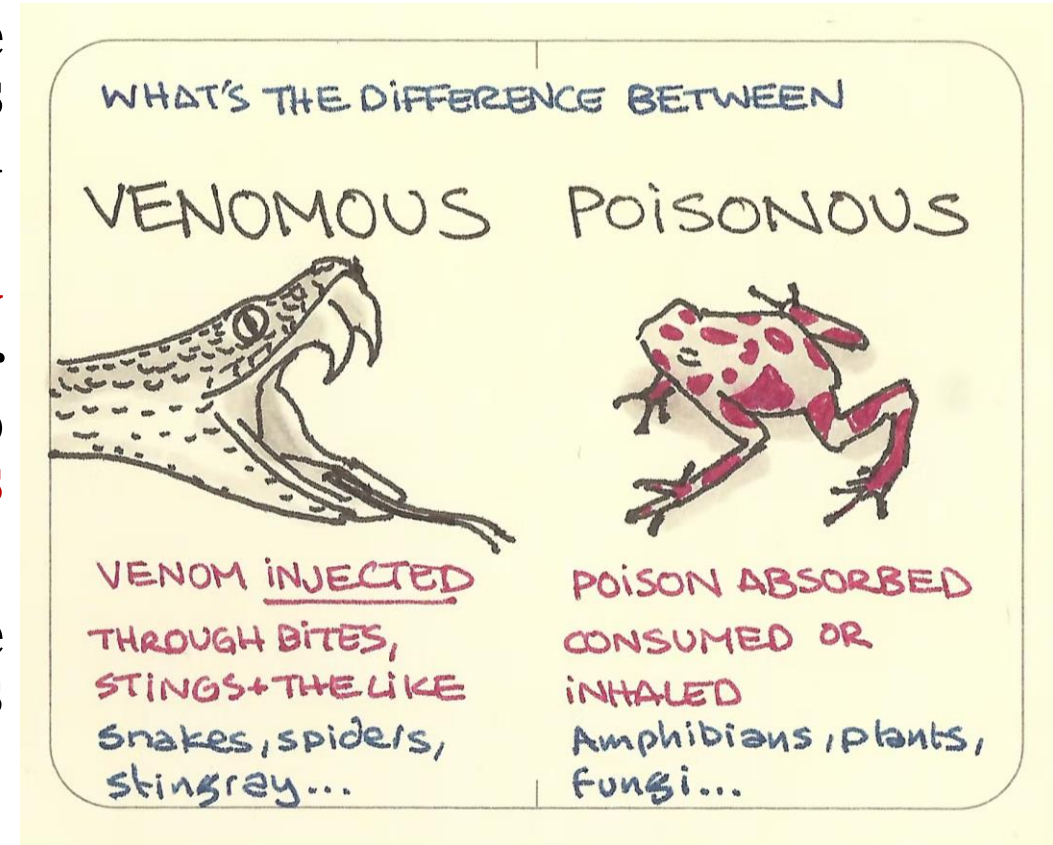 WHAT'S THE DIFFERENCE BETWEEN
VENOMOUS
VENOM INJECTED
THROUGH BITES,
STINGS+THE LIKE
snakes, spiders,
stingray...
POISONOUS
POISON ABSORBED
CONSUMED OR
INHALED
Amphibians, plants,
fungi...